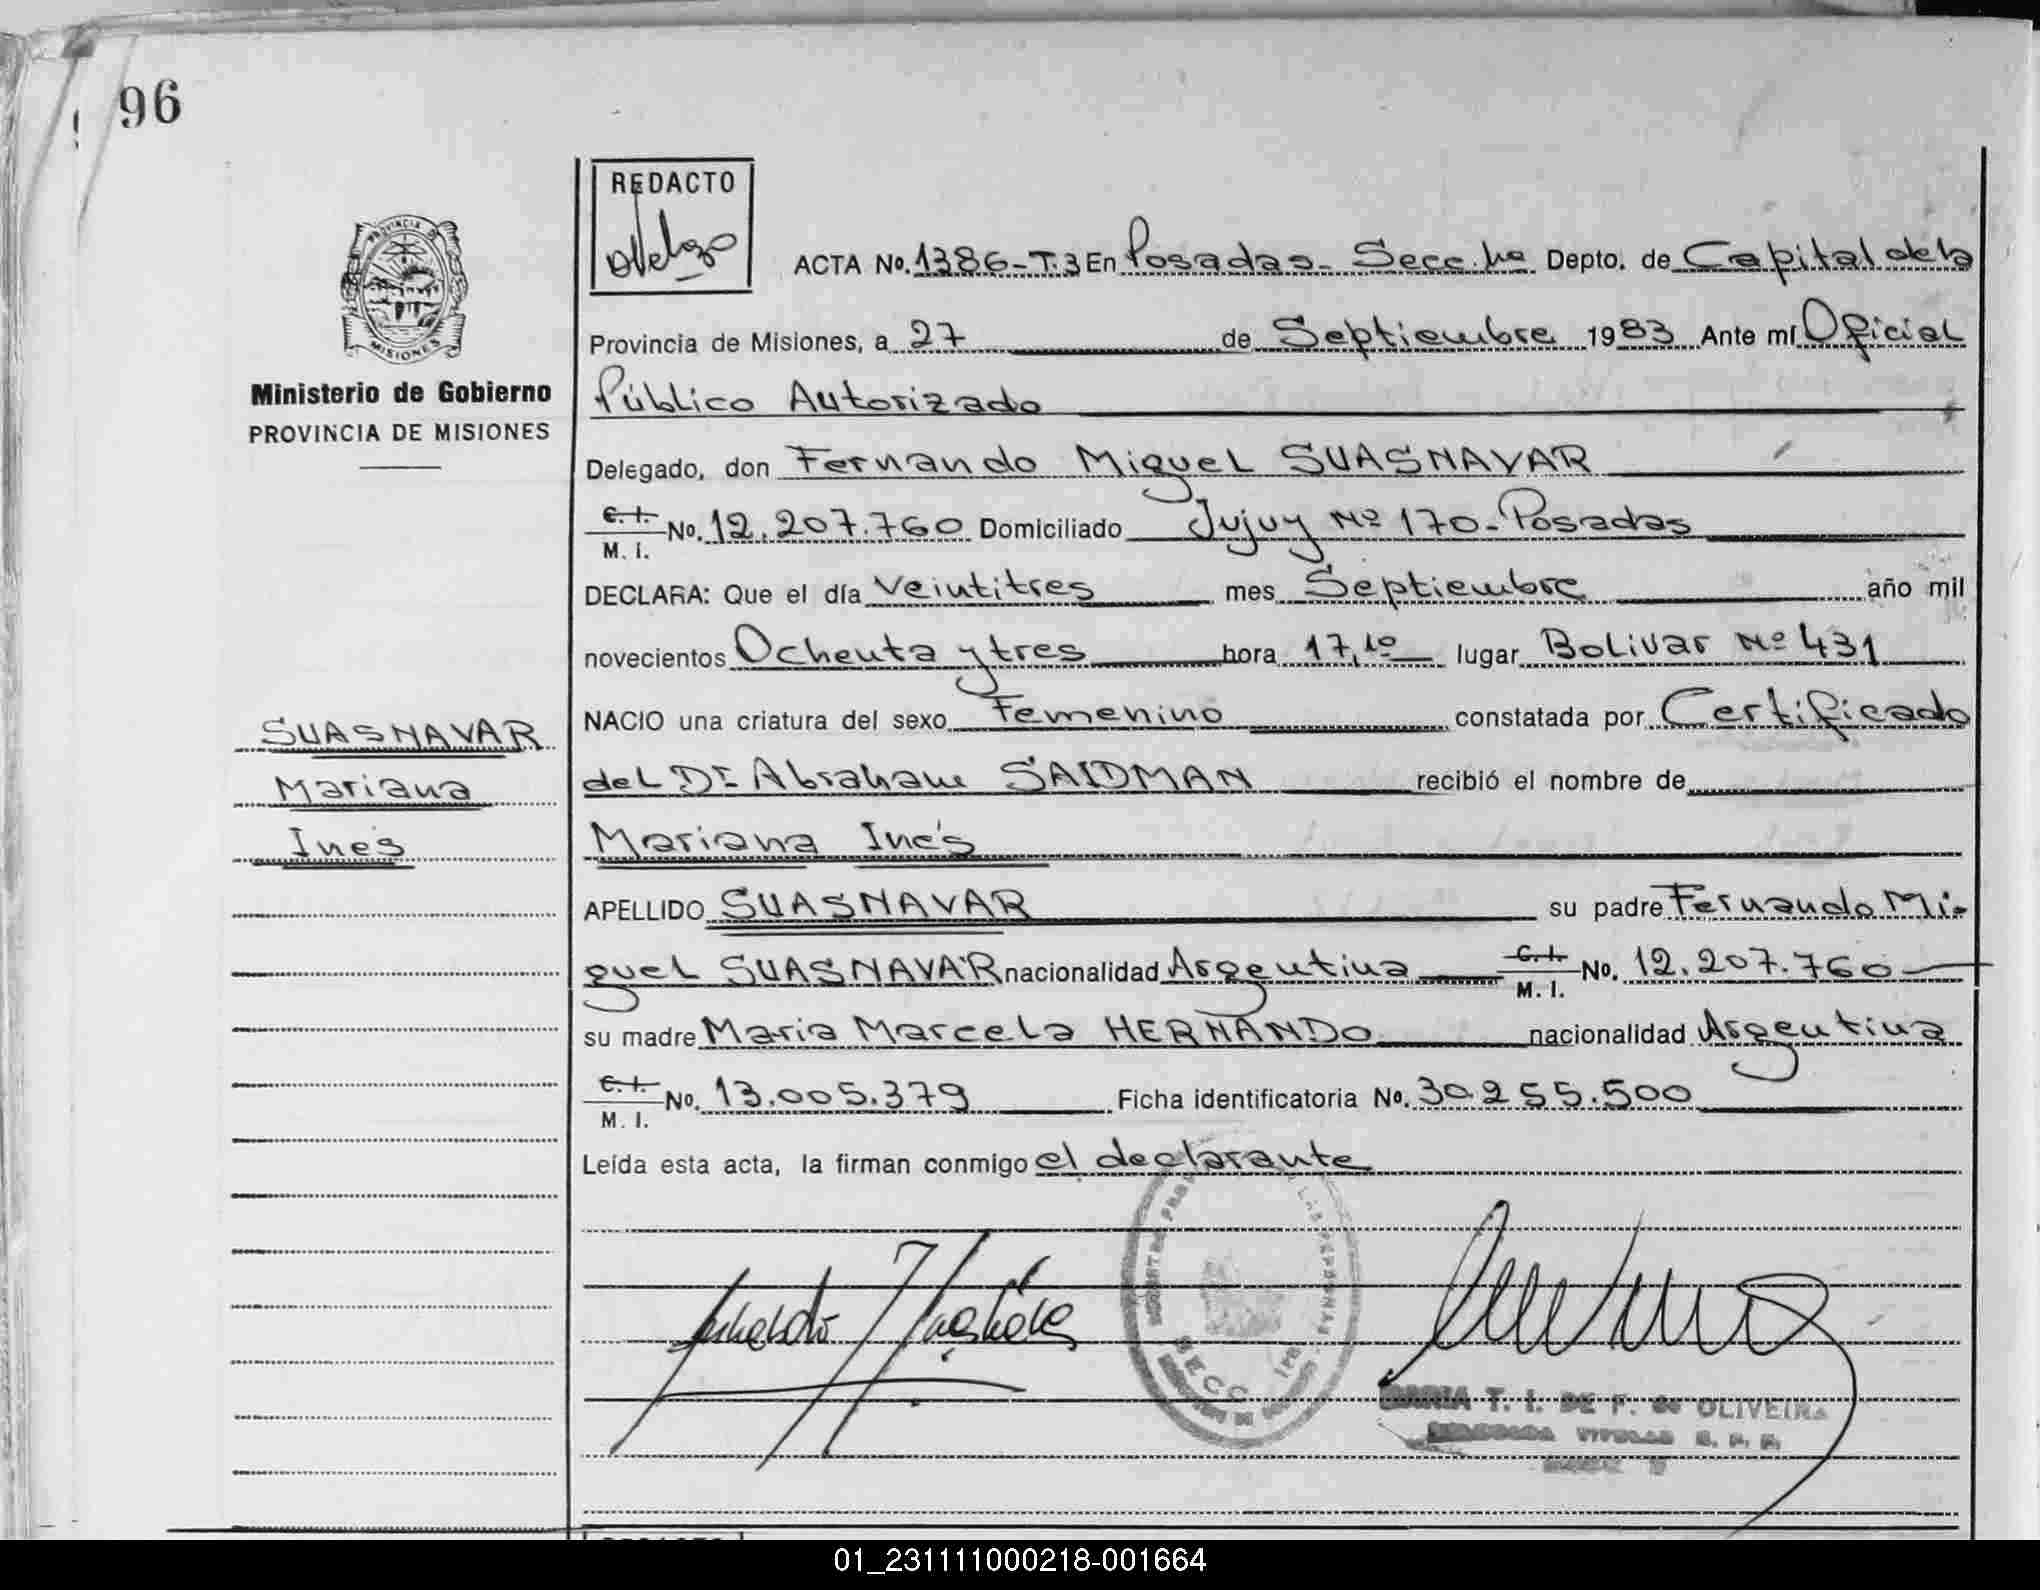 96
REDACTO
PROVINCIA DE
MISIONES
Ministerio de Gobierno
PROVINCIA DE MISIONES
ACTA No. 1386-T.3 En Posadas - Secc. 1ra Depto. de Capital de la
Provincia de Misiones, a 27 de Septiembre 1983 Ante mí Oficial
Público Autorizado
Delegado, don Fernando Miguel SUASNAVAR
C. I. / M. I. No. 12.207.760 Domiciliado Jujuy Nº 170 - Posadas
DECLARA: Que el día Veintitres mes Septiembre año mil
novecientos Ochenta y tres hora 17,10 lugar Bolivar Nº 431
NACIO una criatura del sexo Femenino constatada por Certificado
del Dr Abraham SAIDMAN recibió el nombre de
Mariana Inés
APELLIDO SUASNAVAR su padre Fernando Mi-
guel SUASNAVAR nacionalidad Argentina C. I. / M. I. No. 12.207.760
su madre Maria Marcela HERNANDO nacionalidad Argentina
C. I. / M. I. No. 13.005.379 Ficha identificatoria No. 30.255.500
Leída esta acta, la firman conmigo el declarante
SUASNAVAR
Mariana
Inés
SECC
T. I. DE F. de OLIVEIRA
01_231111000218-001664